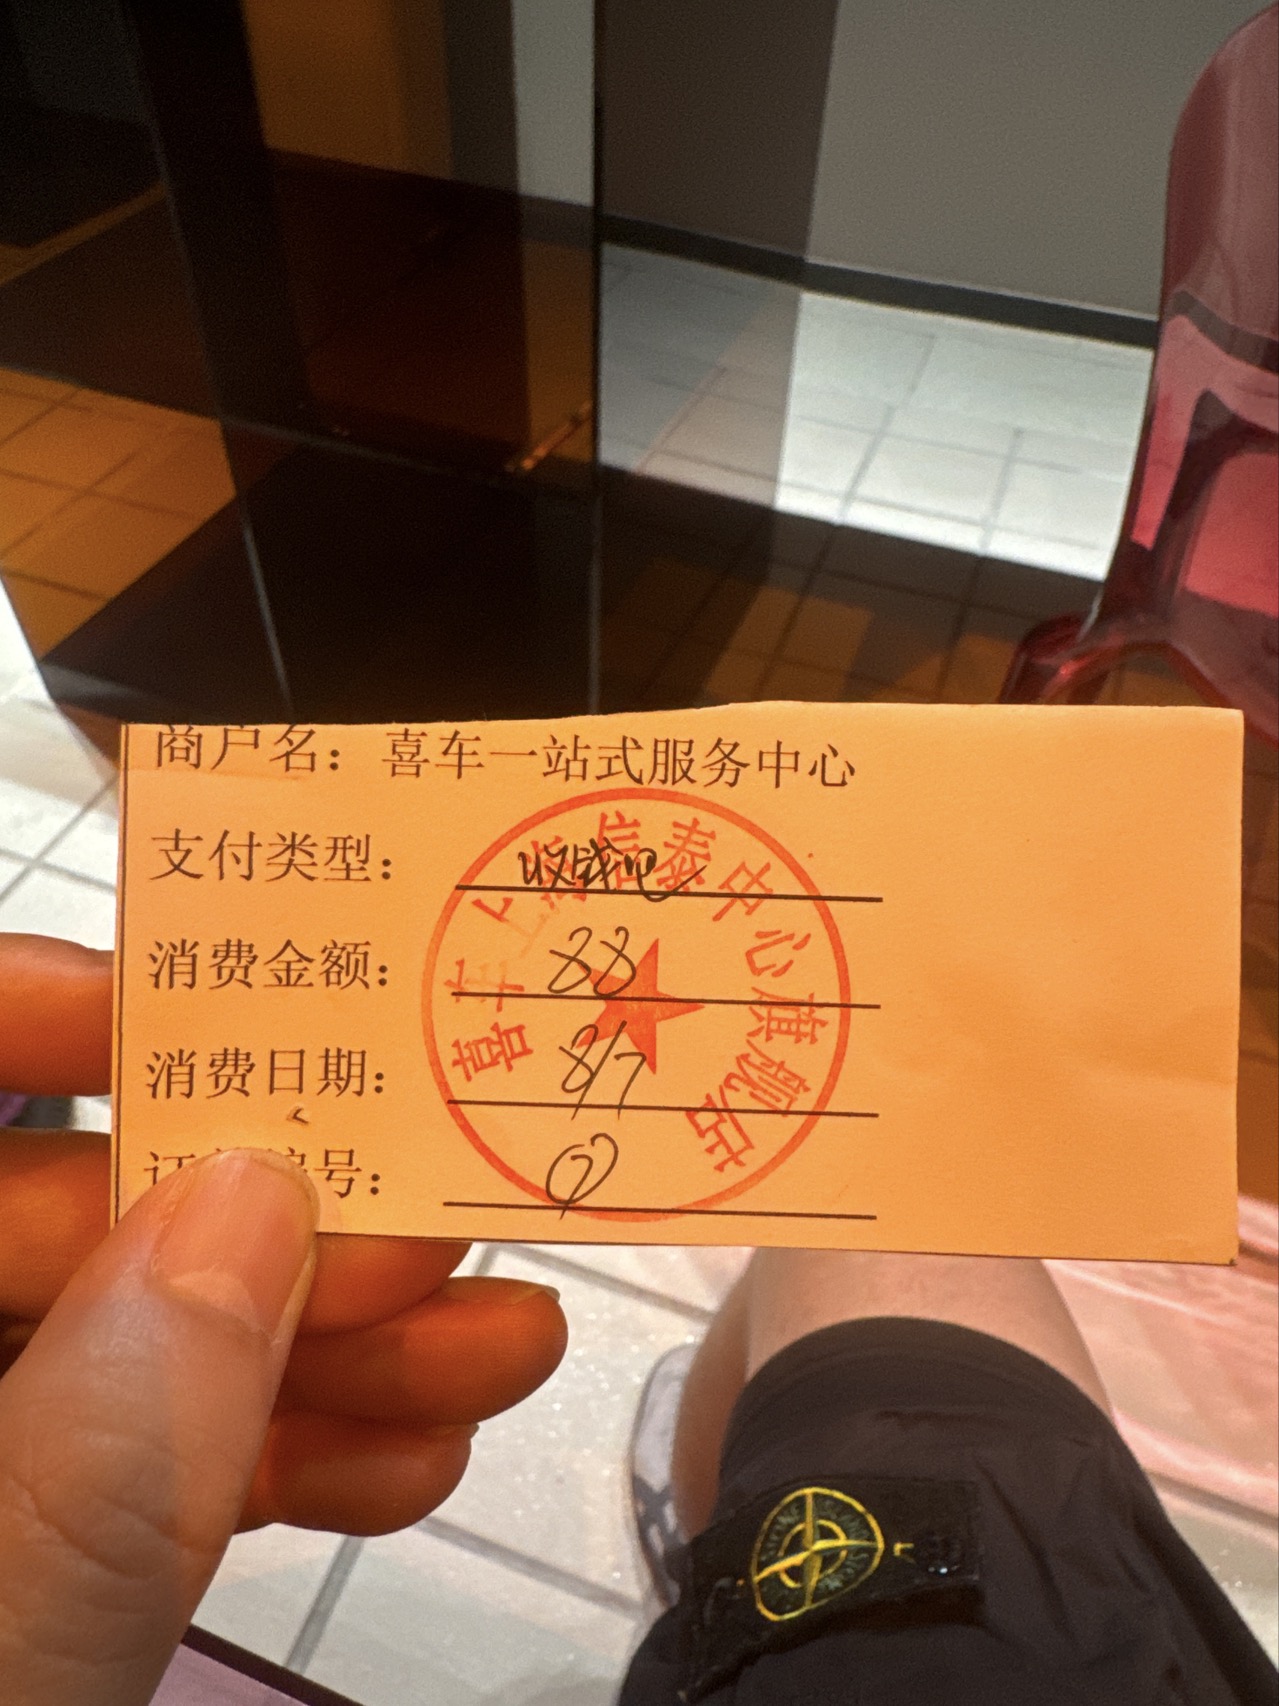 商户名：喜车一站式服务中心
支付类型：收钱吧
消费金额：88
消费日期：8/7
订单编号：⑦
喜车上海信泰中心旗舰店
STONE ISLAND